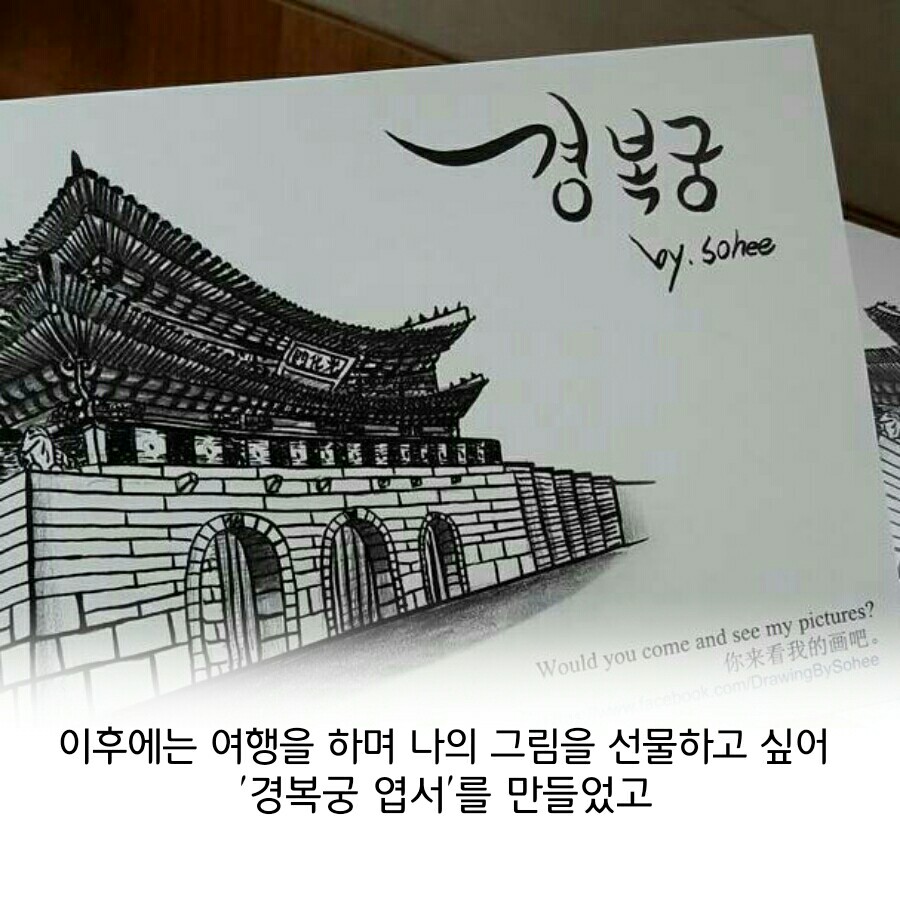 경복궁
by. sohee
光化門
Would you come and see my pictures?
你来看我的画吧。
www.facebook.com/DrawingBySohee
이후에는 여행을 하며 나의 그림을 선물하고 싶어
'경복궁 엽서'를 만들었고